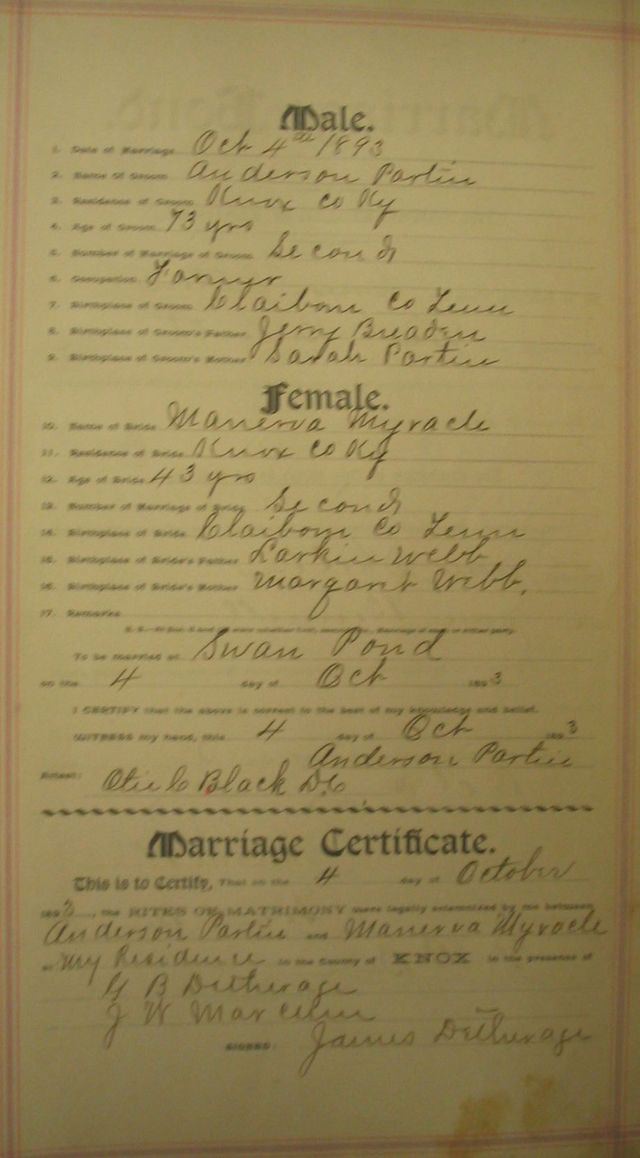 Male.
1. Date of Marriage Oct 4th 1893
2. Name of Groom Anderson Partin
3. Residence of Groom Knox Co Ky
4. Age of Groom 73 yrs
5. Number of Marriage of Groom Second
6. Occupation Farmer
7. Birthplace of Groom Claiborn Co Tenn
8. Birthplace of Groom's Father Jerry Breaden
9. Birthplace of Groom's Mother Sarah Partin
Female.
10. Name of Bride Manerva Myracle
11. Residence of Bride Knox Co Ky
12. Age of Bride 43 yrs
13. Number of Marriage of Bride Second
14. Birthplace of Bride Claiborn Co Tenn
15. Birthplace of Bride's Father Larkin Webb
16. Birthplace of Bride's Mother Margaret Webb.
17. Remarks
To be married at Swan Pond
on the 4 day of Oct 1893
I CERTIFY that the above is correct to the best of my knowledge and belief.
WITNESS my hand, this 4 day of Oct 1893
Anderson Partin
Attest: Black D.C
Marriage Certificate.
This is to Certify, That on the 4 day of October
1893, the RITES OF MATRIMONY were legally solemnized by me between
Anderson Partin and Manerva Myracle
at My Residence in the County of KNOX in the presence of
G B Detherage
J W Marcelin
SIGNED: James Detherage